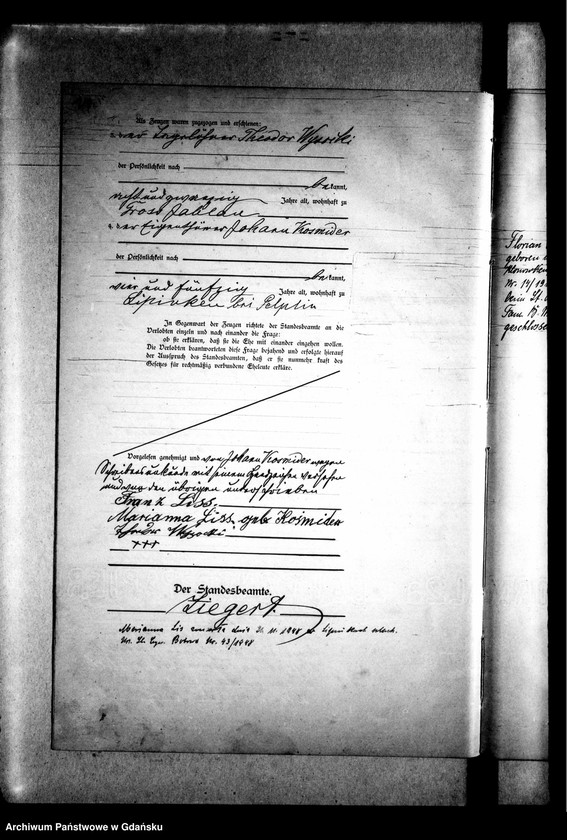 Als Zeugen waren zugezogen und erschienen:
der Tagelöhner Theodor Wysocki
der Persönlichkeit nach
bekannt,
achtundzwanzig Jahre alt, wohnhaft zu
Gross Jablau
der Eigenthümer Johann Kosmider
der Persönlichkeit nach
bekannt,
vier und fünfzig Jahre alt, wohnhaft zu
Lipinken bei Pelplin
In Gegenwart der Zeugen richtete der Standesbeamte an die
Verlobten einzeln und nach einander die Frage:
ob sie erklären, daß sie die Ehe mit einander eingehen wollen.
Die Verlobten beantworteten diese Frage bejahend und erfolgte hierauf
der Ausspruch des Standesbeamten, daß er sie nunmehr kraft des
Gesetzes für rechtmäßig verbundene Eheleute erkläre.
Vorgelesen, genehmigt und von Johann Kosmider wegen
Schreibensunkunde mit seinem Handzeichen versehen
und von den übrigen unterschrieben
Franz Liss.
Marianna Liss geb. Kosmider
Theodor Wysocki
+++
Der Standesbeamte.
Ziegert.
Marianna Lis zmarła dnia 21. 11. 1948
Nr. 43/1948
Florian
geboren
Nr. 14/19
Fam. B.
geschlosse
Archiwum Państwowe w Gdańsku